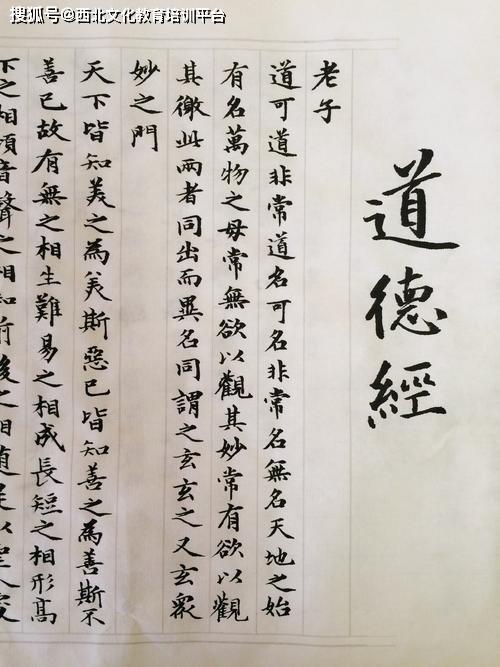 搜狐号@西北文化教育培训平台
道德經
老子
道可道非常道名可名非常名無名天地之始
有名萬物之母常無欲以觀其妙常有欲以觀
其徼此兩者同出而異名同謂之玄玄之又玄眾
妙之門
天下皆知美之為美斯惡已皆知善之為善斯不
善已故有無之相生難易之相成長短之相形高
下之相音聲之相前後之相